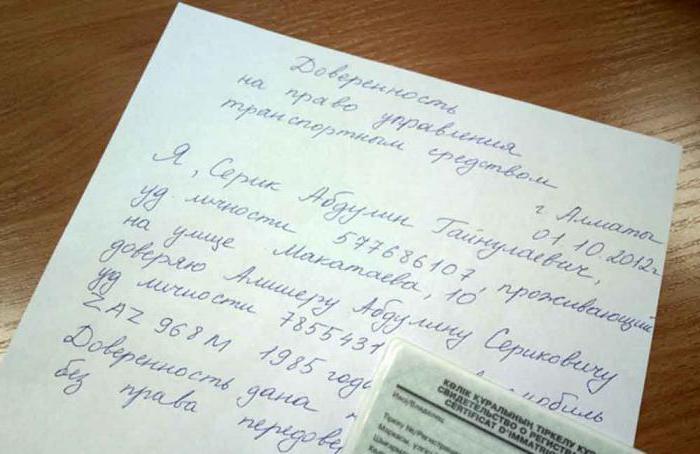 Доверенность
на право управления
транспортным средством
г. Алматы
01.10.2012г
Я, Серик Абдулин Гайнулаевич,
уд. личности 577686107, проживающий
на улице Макатаева, 10
доверяю Алишеру Абдулину Сериковичу
уд личности 7855431
ZAZ 968М 1985 года
Доверенность дана
без права передове
КӨЛІК ҚҰРАЛЫНЫҢ ТІРКЕЛУ КУ
СВИДЕТЕЛЬСТВО О РЕГИСТРА
CERTIFICAT D'IMMATRI
Иесі/Владелец